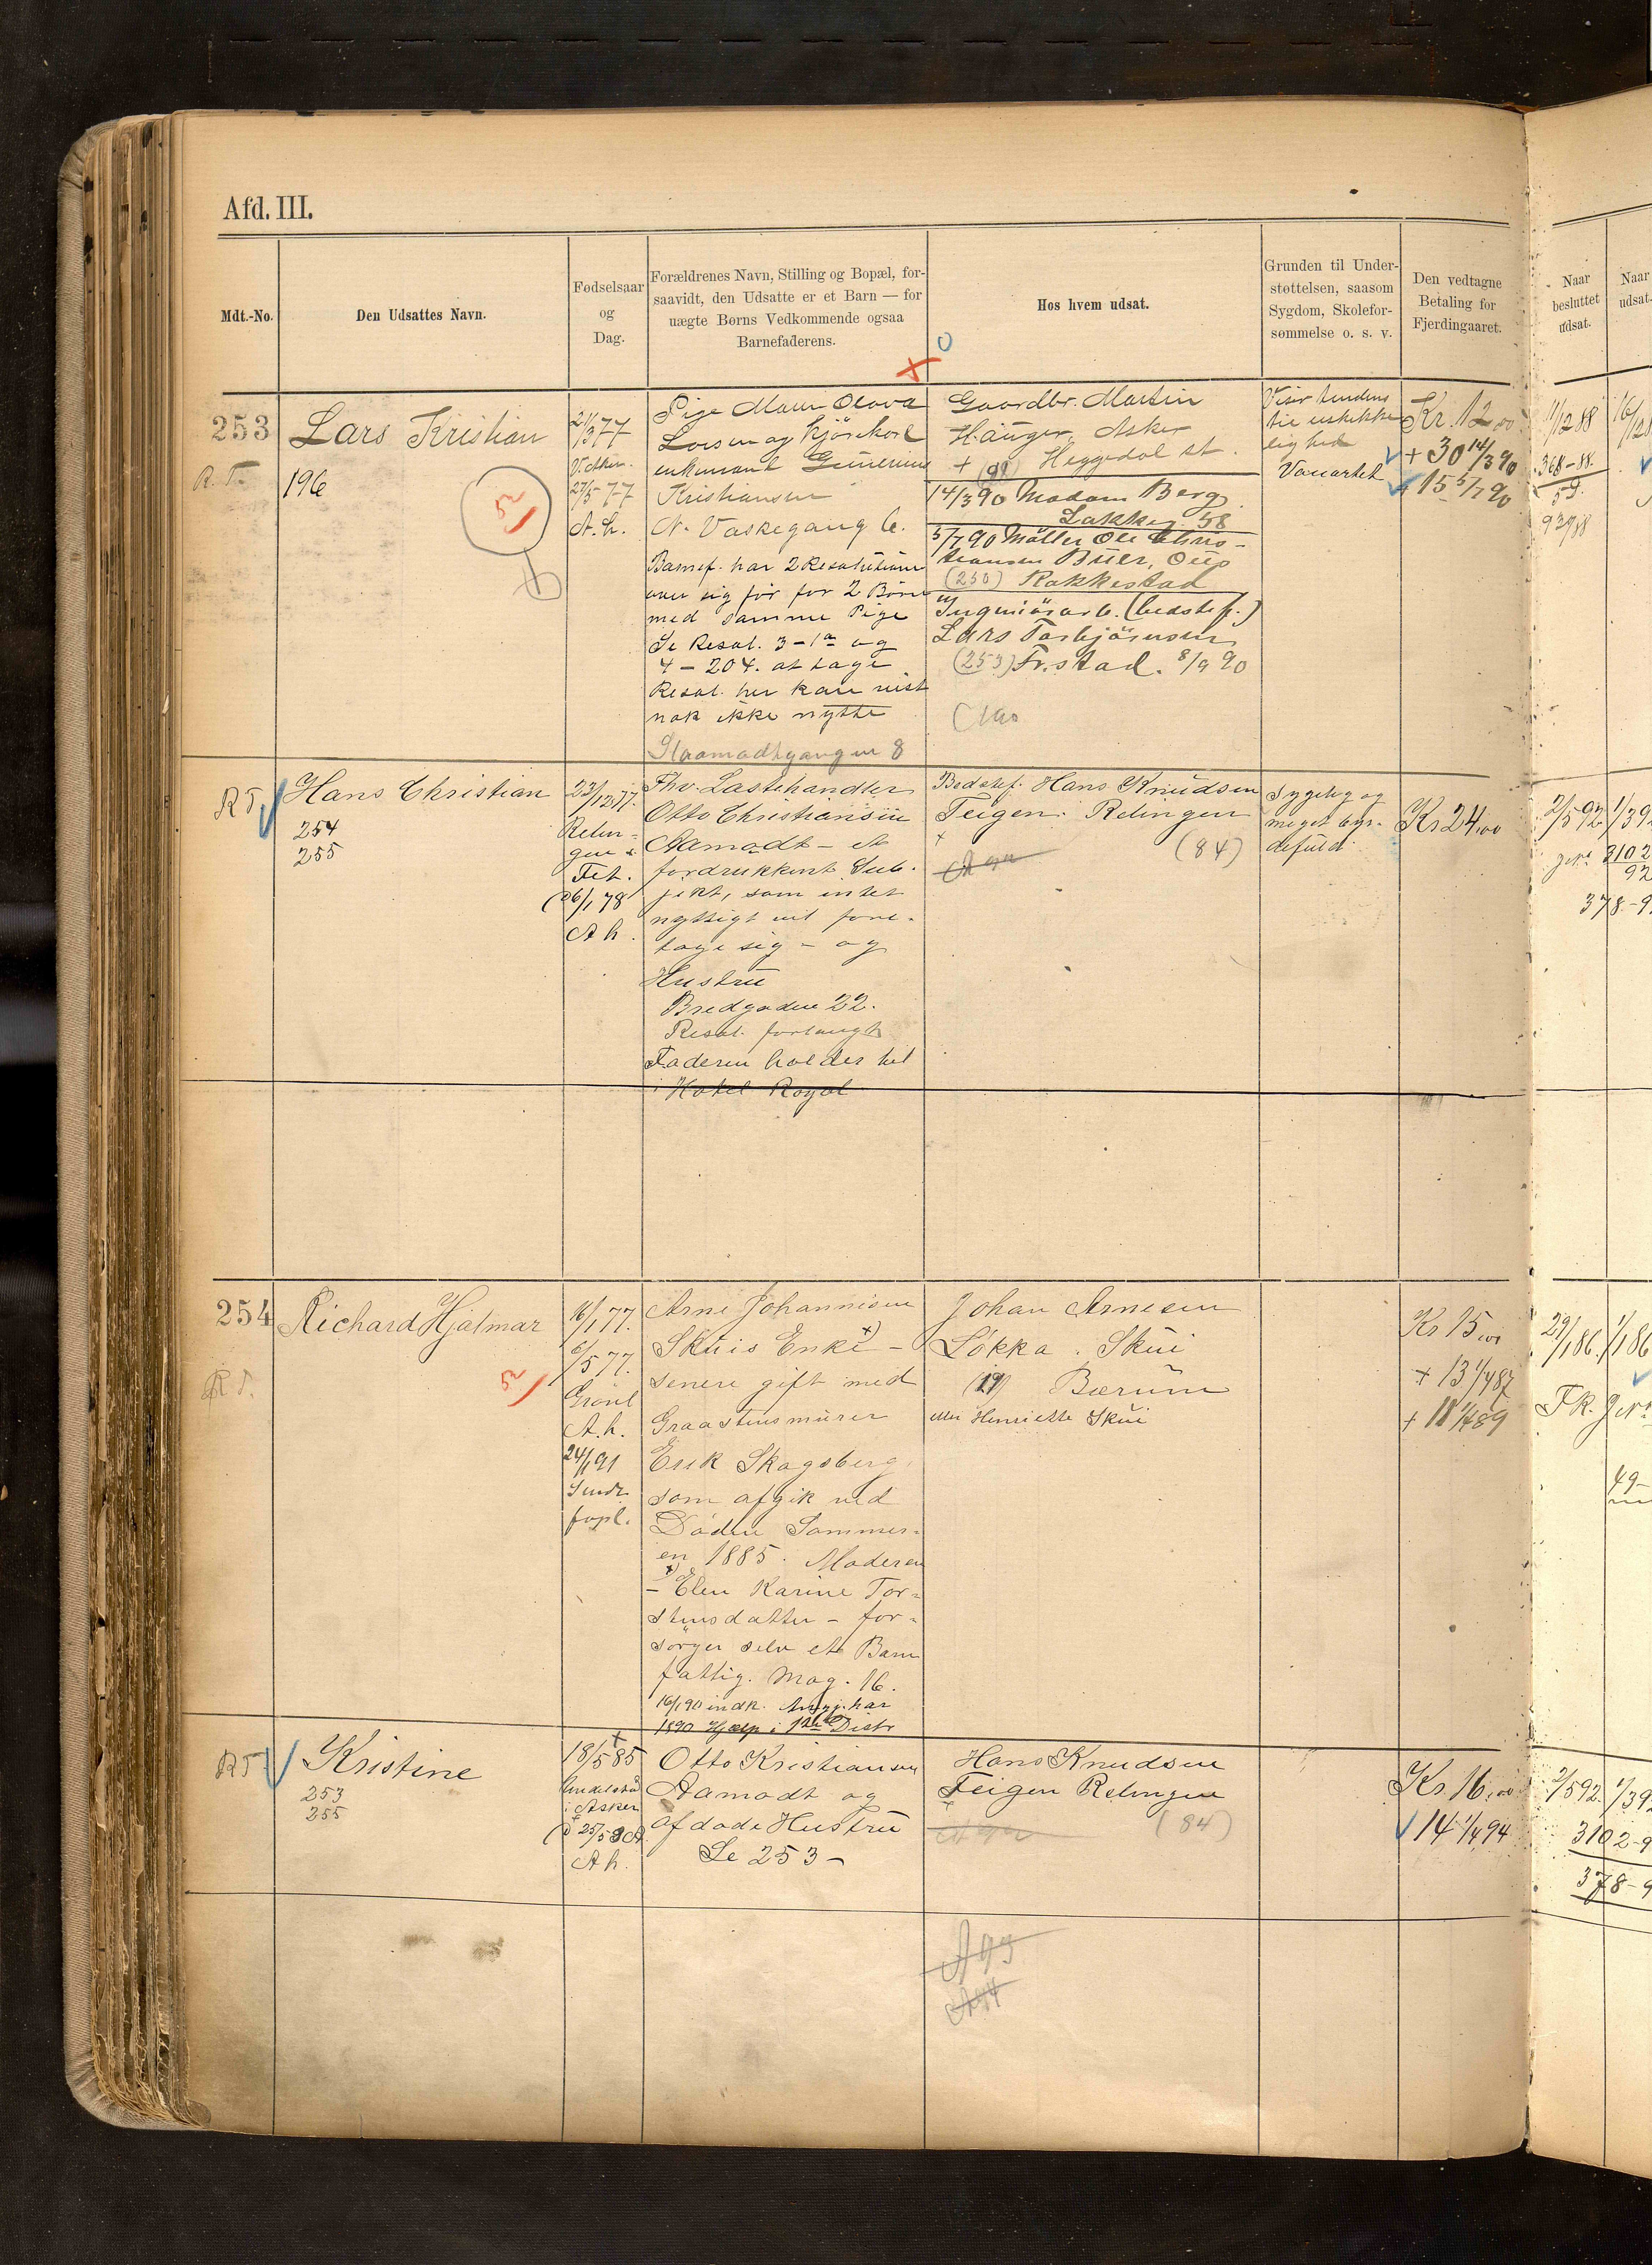 Afd. III.
Mdt.-No.
Den Udsattes Navn.
Fødselsaar
og
Dag.
Forældrenes Navn, Stilling og Bopæl, for-
saavidt, den Udsatte er et Barn — for
uægte Børns Vedkommende ogsaa
Barnefaderens.
Hos hvem udsat.
Grunden til Under-
støttelsen, saasom
Sygdom, Skolefor-
sømmelse o. s. v.
Den vedtagne
Betaling for
Fjerdingaaret.
Naar
besluttet
udsat.
Naar
udsat.
253
R. T.
Lars Kristian
196
5
21/3 77
V. Aker.
27/5 77
A. h.
Pige Maren Olava
Larsen og Kjörekarl
enkemand Gunerius
Kristiansen
N. Vaskegang 6.
Barnef. har 2 Resolutioner
over sig för for 2 Börn
med samme Pige
Se Resol. 3 - 1a og
4 - 204. at tage
Resol. her kan vist
nok ikke nytte
8
Gaardbr. Martin
Hauger, Asker
Heggedal st.
14/3 90 Madam Berg
Lakkeg. 58
5/7 90 Møller Ole Chris-
tiansen Buer, Øies
(250) Rakkestad
Ingeniörarb. (bedstef.)
Lars Torbjörnsen
(253) Fr.stad. 8/9 90
Viser tendens
til uskikke
lighed
Vanartet
Kr. 12,00
+ 30 14/3 90
15 5/7 90
11/12 88
368-88.
R T.
Hans Christian
254
255
23/12 77.
Relin-
gen
Fet.
26/1 78
A h.
Fhv. Lastehandler
Otto Christiansen
Aamodt - et
fordrukkent Sub-
jekt, som intet
nyttigt vil fore-
tage sig - og
Hustru
Bredgaden 22.
Resol. forlangt
Faderen holder til
i Hotel Royal
Bedstef. Hans Knudsen
Teigen. Relingen
(84)
Sygelig og
meget byr-
defuld.
Kr 24,00
2/5 92
378-9
254
R T.
Richard Hjalmar
5
16/1 77.
6/5 77.
Grönl
A. h.
24/1 91
Arne Johannisen
Skuis Enke x) -
senere gift med
Graastensmurer
Erik Skogsberg
som afgik ved
Döden Sommer-
en 1885. Moderen
x) - Elen Karine Tor-
stensdatter - for-
sörger selv et Barn
fattig. Mag. 16.
1890 Hjælp i 12te Distr
Johan Arnesen
Løkka. Skui
(19) Bærum
eller Henriette Skui
Kr 15,00
+ 13 1/4 87
+ 11 1/4 89
29/1 86.
1/1 86
R T.
Kristine
253
255
18/5 85
i Asker
A h.
Otto Kristiansen
Aamodt og
afdøde Hustru
Se 253 -
Hans Knudsen
Teigen Relingen
(84)
Kr. 16,00
14 1/4 94
2/5 92.
3102-9
378-9
A 93